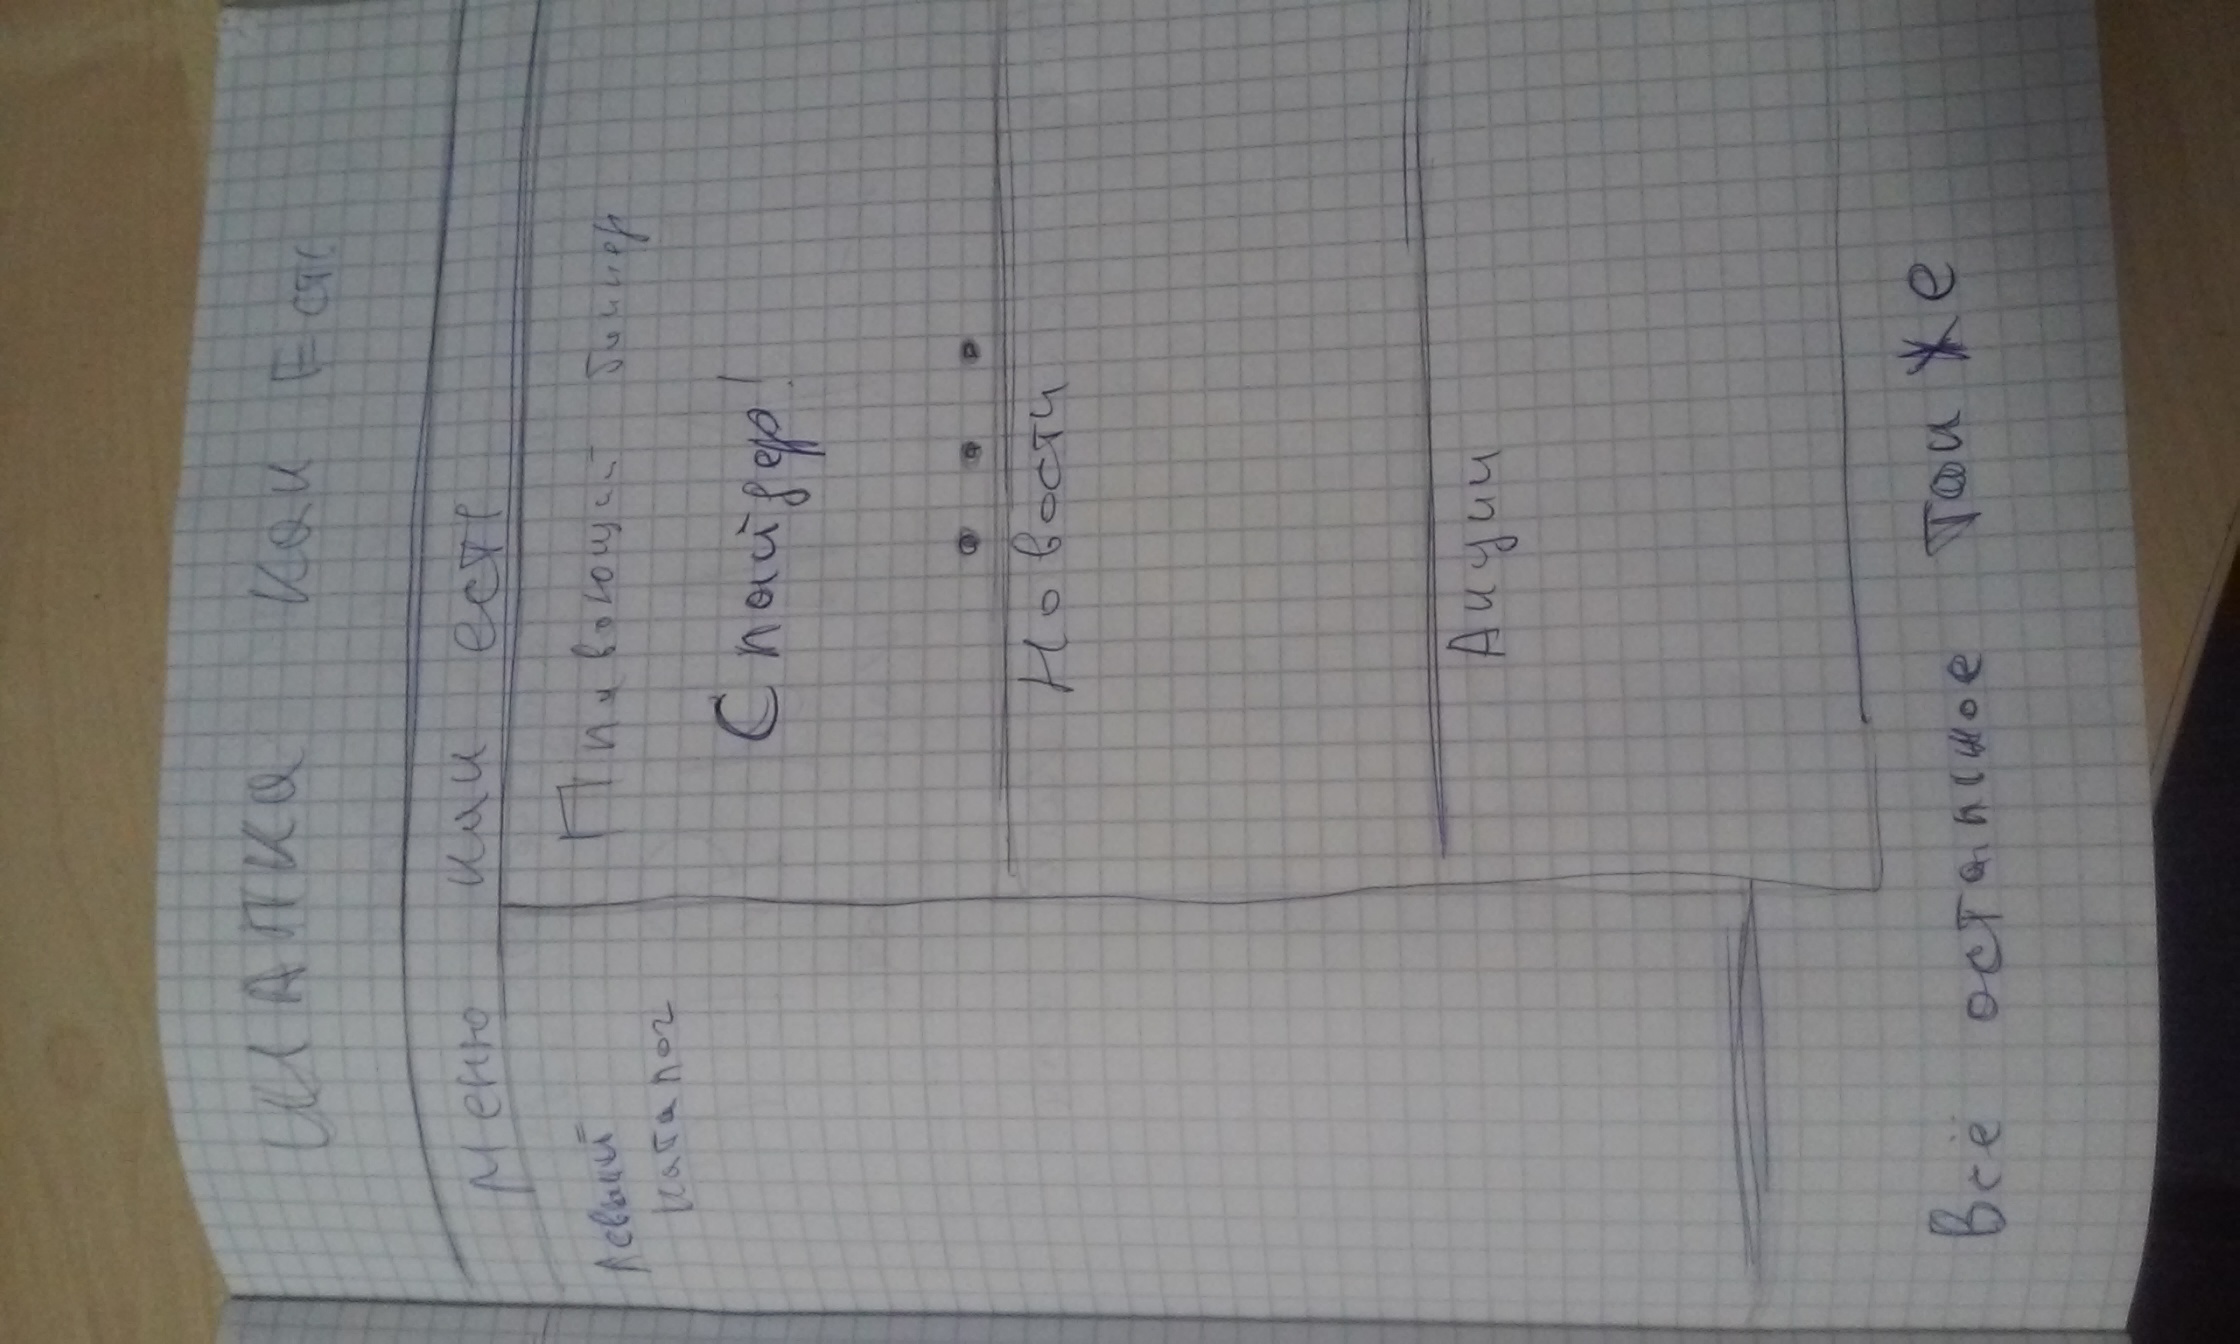 ШАПКа как Есть
Меню как есть
Левый
каталог
Плавающий баннер
Спайдер!
Новости
Акции
Всё остальное так же